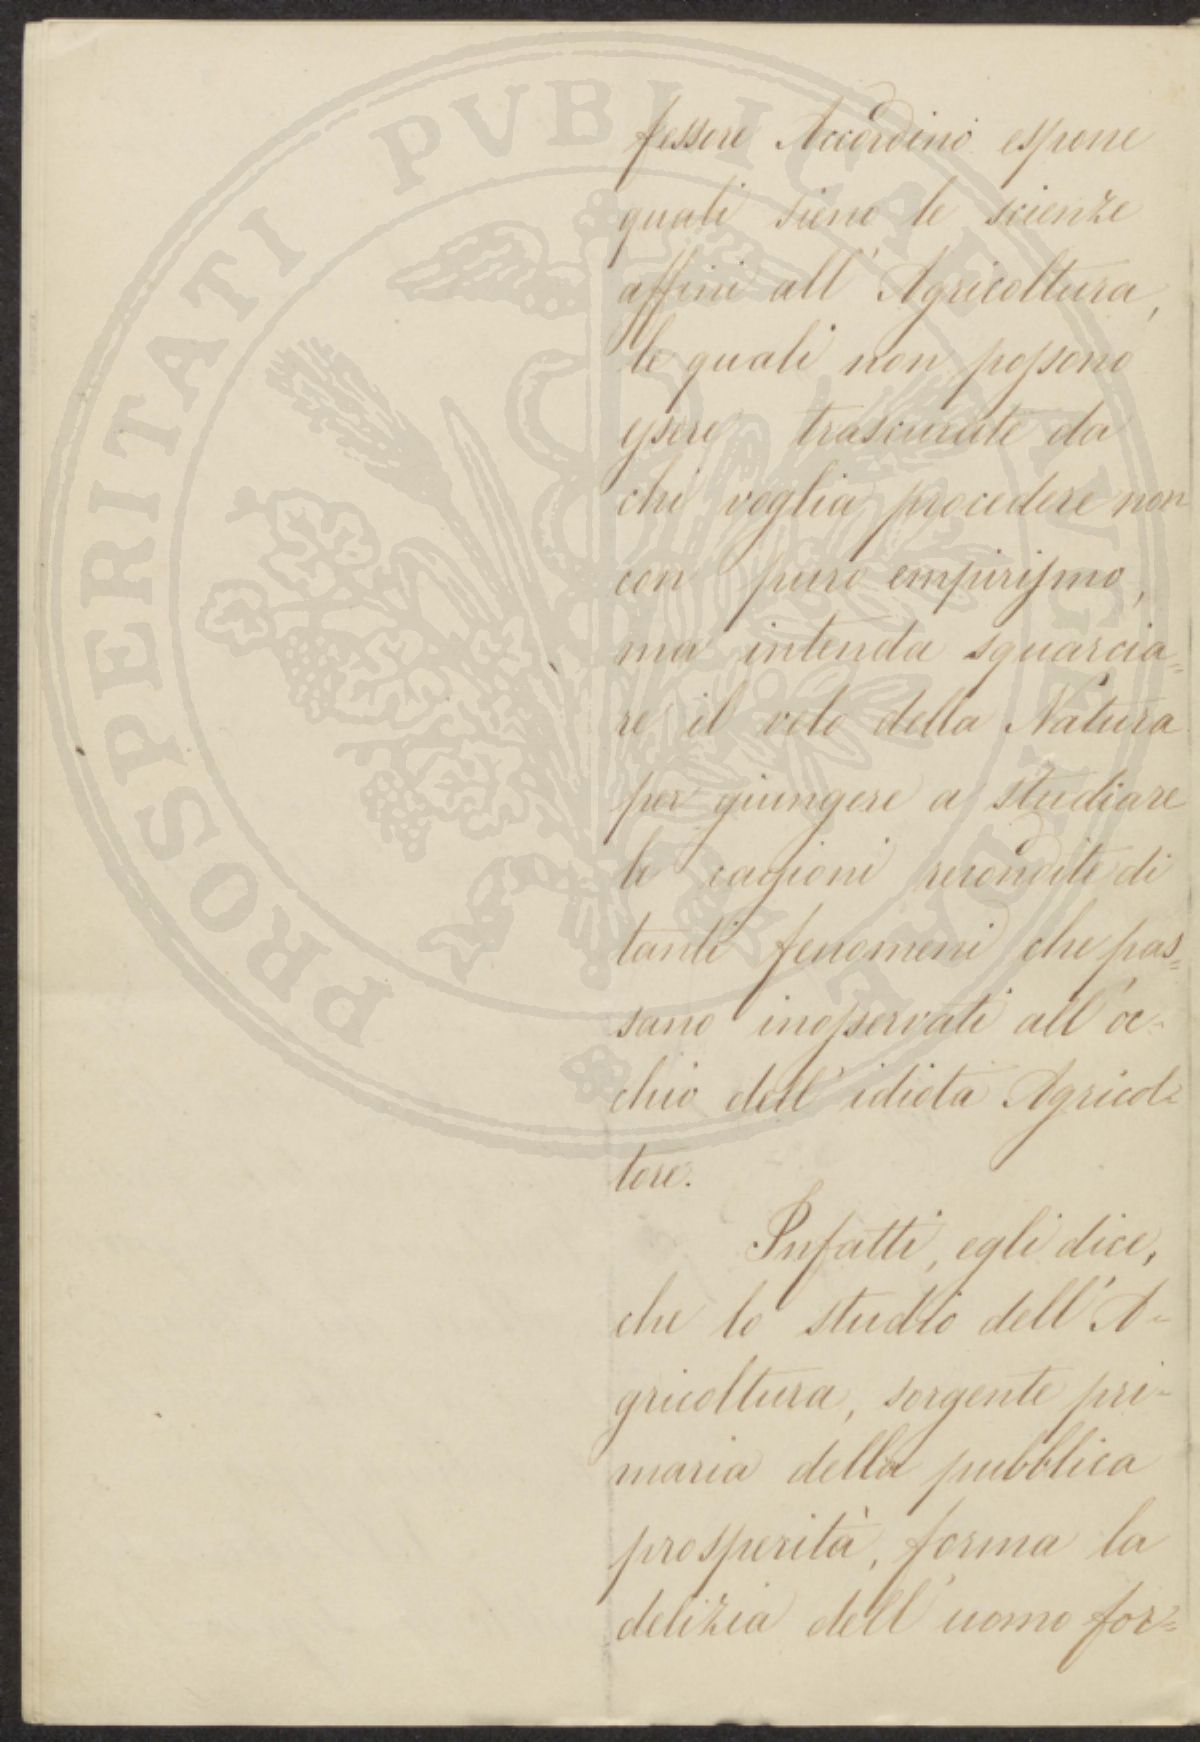 PROSPERITATI PVBLICAE AVGENDAE
fessore Accordino espone
quali sieno le scienze
affini all'Agricoltura,
le quali non possono
essere trascurate da
chi voglia procedere non
con puro empirismo,
ma intenda squarcia=
re il velo della Natura
per giungere a studiare
le cagioni recondite di
tanti fenomeni che pas=
sano inosservati all'oc-
chio dell'idiota Agricol=
tore.
Infatti, egli dice,
che lo studio dell'A=
gricoltura, sorgente pri=
maria della pubblica
prosperità, forma la
delizia dell'uomo for=